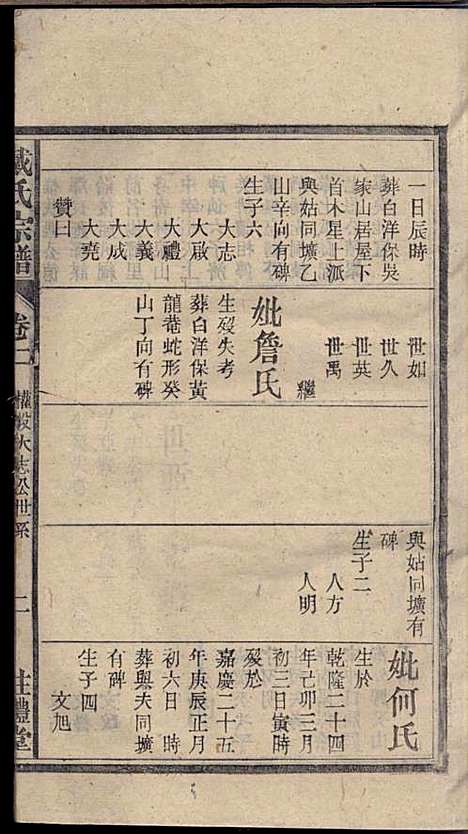 一日辰時
葬白洋保吳
家山居屋下
首木星上派
與姑同壙乙
山辛向有碑
生子六
大志
大啟
大禮
大義
大成
大堯
贊曰
世如
世久
世英
世禹
繼
妣詹氏
生歿失考
葬白洋保黃
龍菴蛇形癸
山丁向有碑
與姑同壙有
碑
生子二
人方
人明
妣何氏
生於
乾隆二十四
年己卯三月
初三日寅時
歿於
嘉慶二十五
年庚辰正月
初六日 時
葬與夫同壙
有碑
生子四
文旭
戴氏宗譜
卷二
權股大志公世系
二
注禮堂